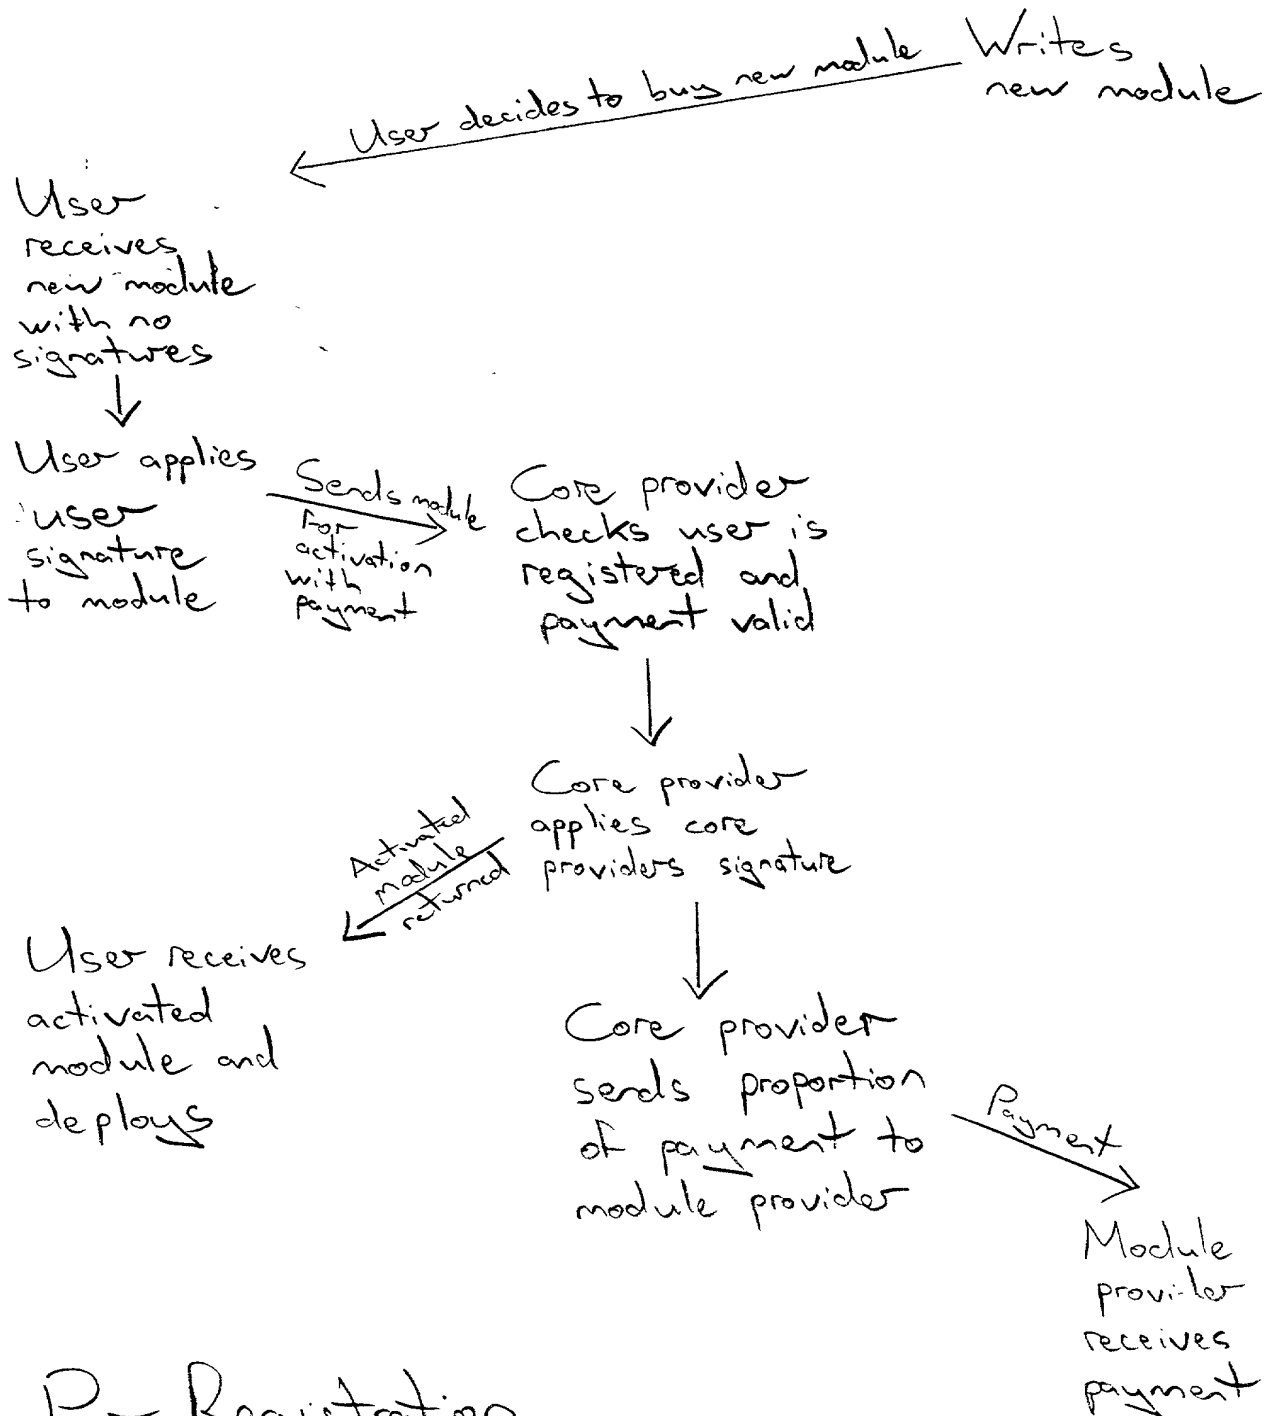 Writes
new module
User decides to buy new module
User
receives
new module
with no
signatures
User applies
user
signature
to module
Sends module
for
activation
with
payment
Core provider
checks user is
registered and
payment valid
Core provider
applies core
providers signature
Activated
module
returned
User receives
activated
module and
deploys
Core provider
sends proportion
of payment to
module provider
Payment
Module
provider
receives
payment
Registration